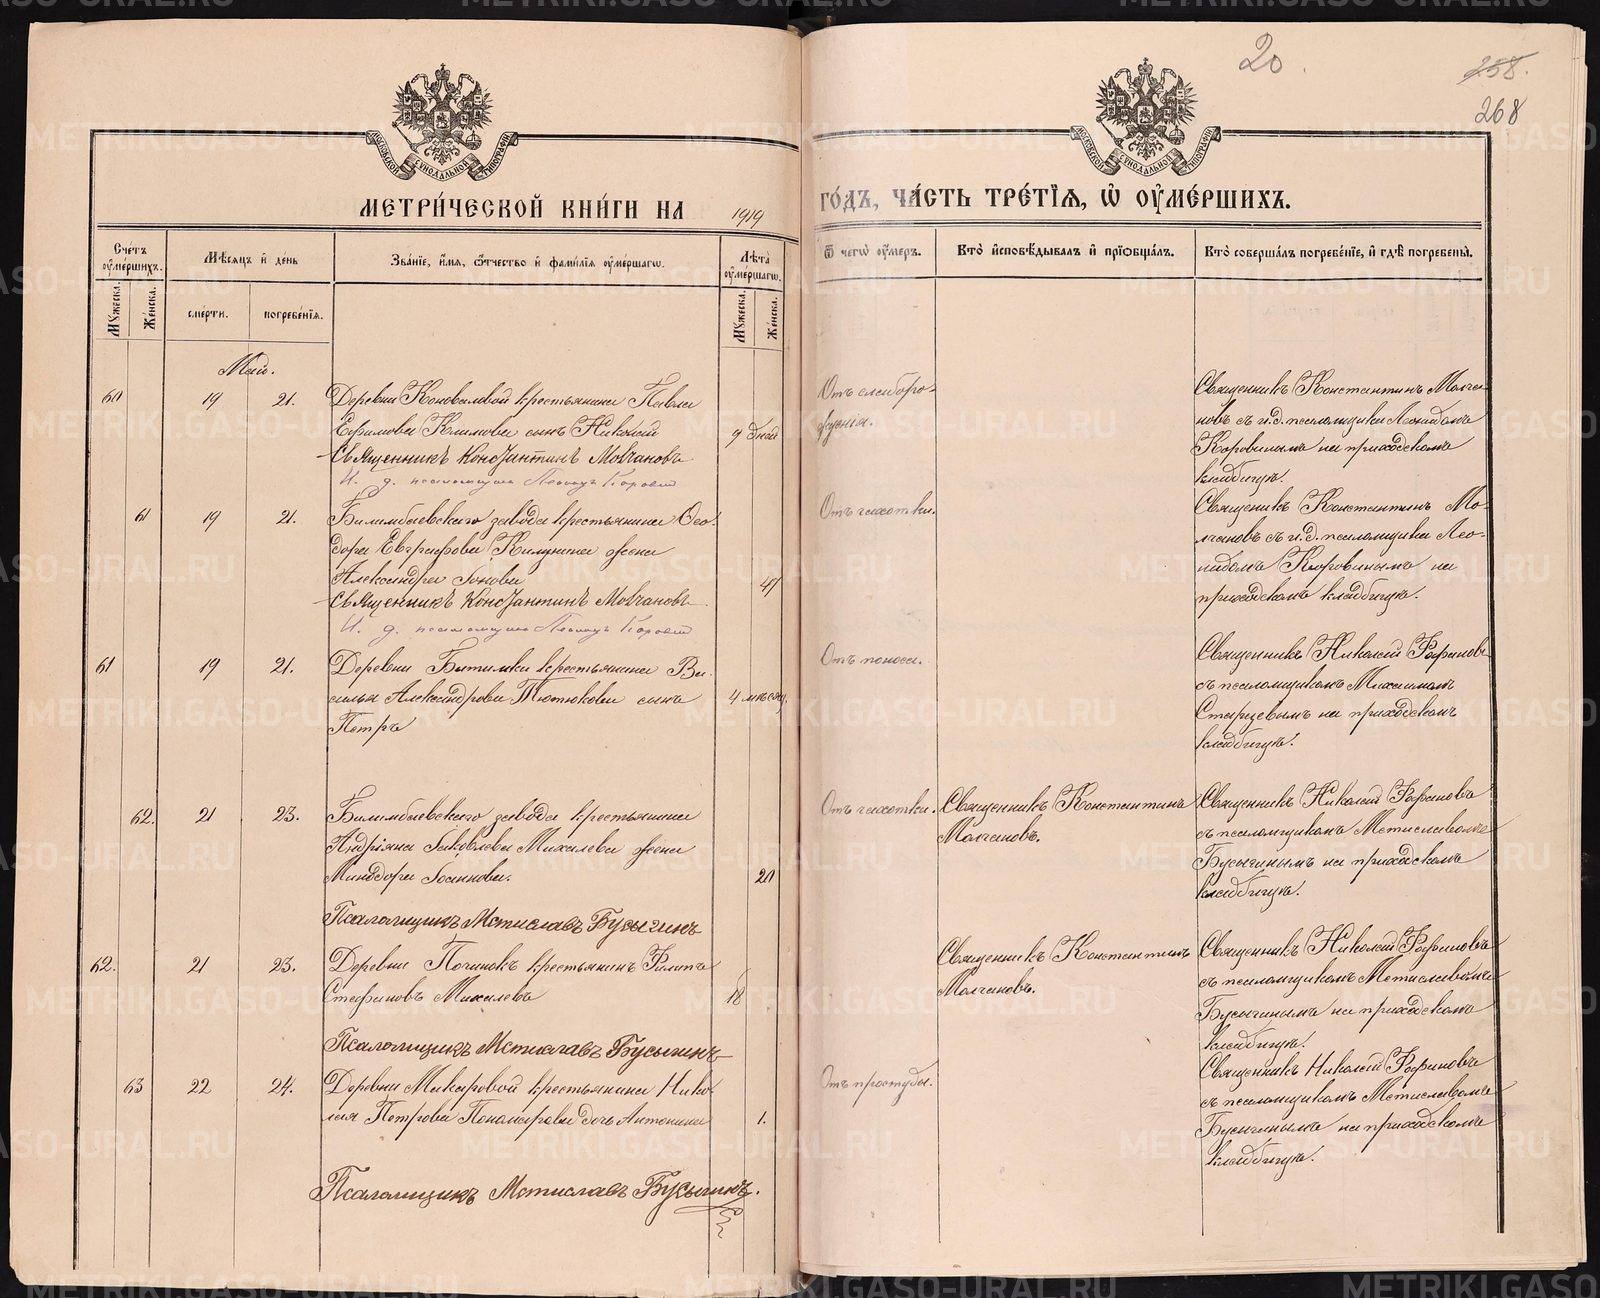 20.
258.
268
МОСКОВСКОЙ СѴНОДАЛЬНОЙ ТИПОГРАФІИ
МОСКОВСКОЙ СѴНОДАЛЬНОЙ ТИПОГРАФІИ
МЕТРИ́ЧЕСКОЙ КНИ́ГИ НА 1919 ГО́ДЪ, ЧА́СТЬ ТРЕ́ТІЯ, Ѡ҆ ОУ҆МЕ́РШИХЪ.
Счетъ оу҆мершихъ.
Мѣсяцъ и҆ день
Зва́нїе, и҆́мя, ѻ҆́тчество и҆ фами́лїѧ оу҆ме́ршагѡ.
Лѣта оу҆ме́ршагѡ.
Ѿ чегѡ̀ оу҆́меръ.
Кто̀ и҆сповѣ́дывалъ и҆ прїѡбща́лъ.
Кто̀ соверша́лъ погребе́нїе, и҆ гдѣ̀ погребены̀.
Мꙋжеска.
Женска.
сме́рти.
погребе́нїѧ.
Мꙋжеска.
Женска.
Май.
60 19 21. Деревни Коноваловой крестьянина Павла
Ефимова Климова сынъ Николай 9 дней
Священникъ Константинъ Молчановъ
И. д. псаломщика Леонидъ Коровин
Отъ слаборо-
жденія.
Священникъ Константинъ Молча-
новъ съ и.д. псаломщика Леонидомъ
Коровинымъ на приходскомъ
кладбищѣ.
61 19 21. Билимбаевскаго завода крестьянина Ѳео-
дора Евграфова Килунина жена
Александра Іонова 47
Священникъ Константинъ Молчановъ
И. д. псаломщика Леонидъ Коровин
Отъ чахотки.
Священникъ Константинъ Мо-
лчановъ съ и.д. псаломщика Лео-
нидомъ Коровинымъ на
приходскомъ кладбищѣ.
61 19 21. Деревни Битимки крестьянина Ва-
силья Александрова Тютюкова сынъ 4 мѣсяц.
Петръ
Отъ поноса.
Священникъ Николай Фофановъ
съ псаломщикомъ Михаиломъ
Старцевымъ на приходскомъ
кладбищѣ.
62. 21 23. Билимбаевскаго завода крестьянина
Андріана Яковлева Михалева жена
Миндора Іоаннова. 20
Псаломщикъ Мстиславъ Бусыгинъ
Отъ чахотки.
Священникъ Константинъ
Молчановъ.
Священникъ Николай Фофановъ
съ псаломщикомъ Мстиславомъ
Бусыгинымъ на приходскомъ
кладбищѣ.
62. 21 23. Деревни Починокъ крестьянинъ Филипъ
Стефановъ Михалевъ 18
Псаломщикъ Мстиславъ Бусыгинъ
Священникъ Константинъ
Молчановъ.
Священникъ Николай Фофановъ
съ псаломщикомъ Мстиславомъ
Бусыгинымъ на приходскомъ
кладбищѣ.
63 22 24. Деревни Макаровой крестьянина Нико-
лая Петрова Пономарева дочь Антонина 1.
Псаломщикъ Мстиславъ Бусыгинъ.
Отъ простуды.
Священникъ Николай Фофановъ
съ псаломщикомъ Мстиславомъ
Бусыгинымъ на приходскомъ
кладбищѣ.
METRIKI.GASO-URAL.RU